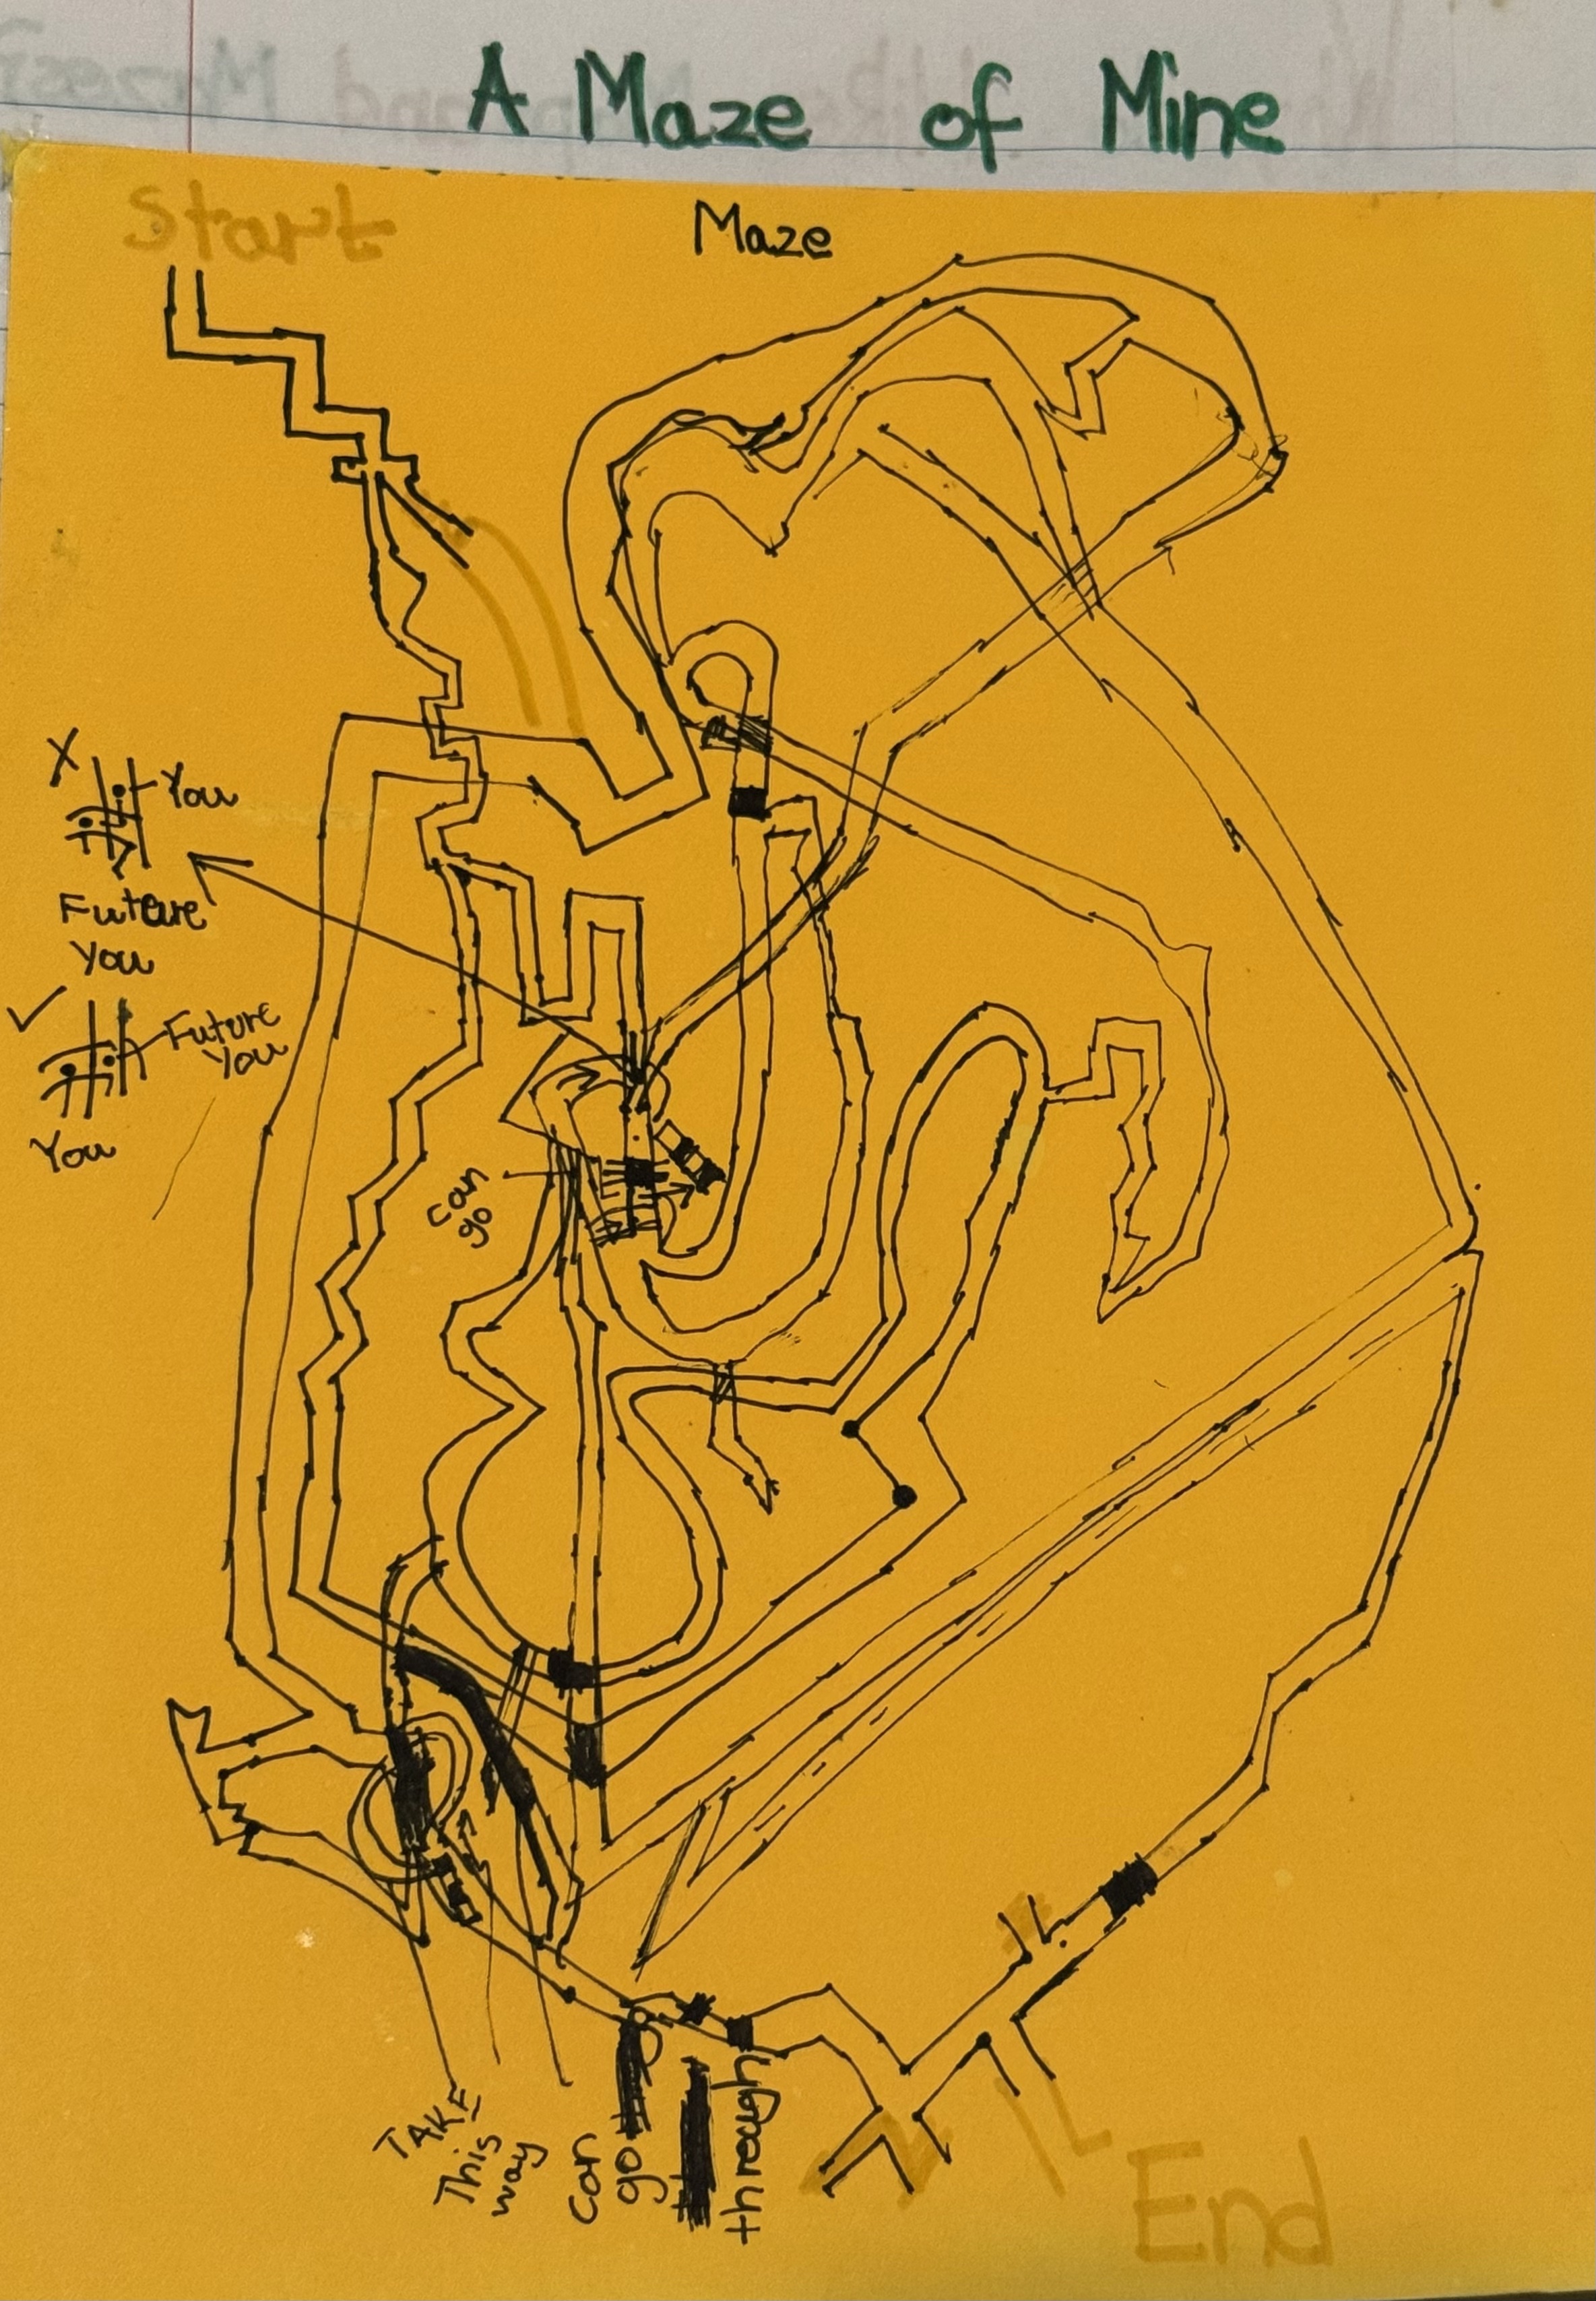 A Maze of Mine
Start
Maze
X
You
Future
You
✓
Future
You
You
can
go
TAKE
This
way
can
go
through
End